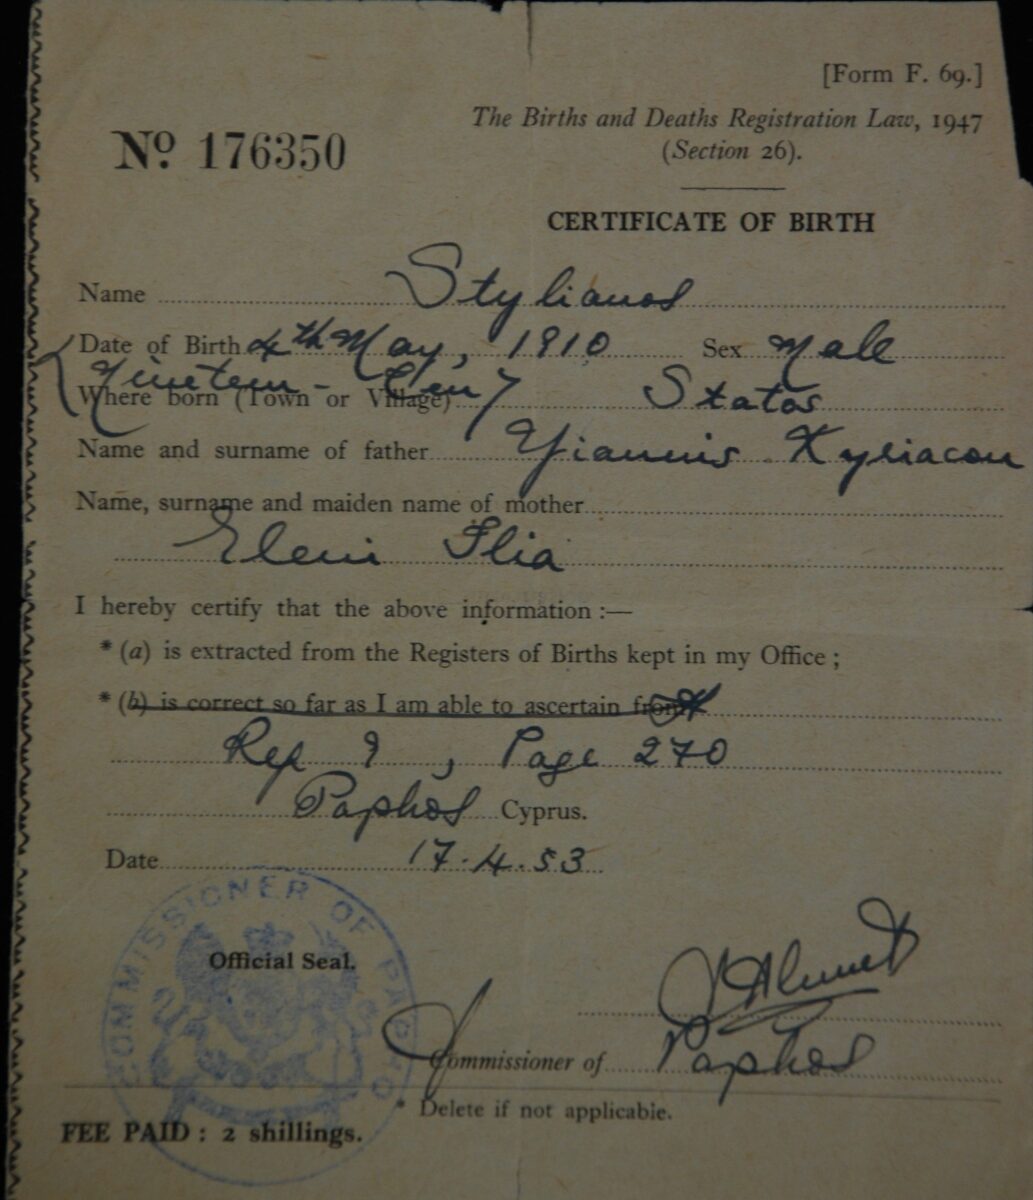 [Form F. 69.]
The Births and Deaths Registration Law, 1947
Nº 176350
(Section 26).
CERTIFICATE OF BIRTH
Name Stylianos
Date of Birth 4th May, 1910 Sex Male
(Nineteen - Ten)
Where born (Town or Village) Statos
Name and surname of father Yiannis Kyriacou
Name, surname and maiden name of mother
Eleni Ilia
I hereby certify that the above information :—
* (a) is extracted from the Registers of Births kept in my Office ;
* (b) is correct so far as I am able to ascertain from
Page 270
Paphos Cyprus.
Date 17.4.53
COMMISSIONER OF PAPHOS
Official Seal.
Commissioner of Paphos
* Delete if not applicable.
FEE PAID : 2 shillings.